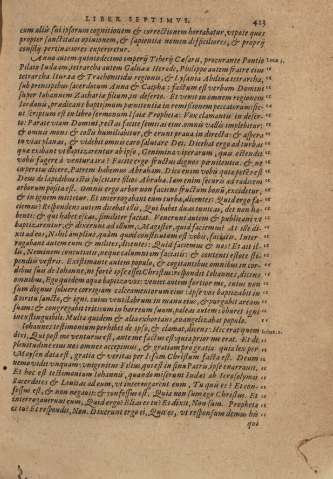 LIBER SEPTIMVS.
423
cum aliàs sui ipsorum cognitionem & correctionem hortabatur, vtpote qui
propter sanctitatis opinionem, & sapientia nomen difficiliores, & proprij
consilij pertinaces experiretur.
Anno autem quintodecimo imperij Tiberij Cæsaris, procurante Pontio
Lucæ 3.
Pilato Iudæam, tetrarcha autem Galilææ Herode, Philippo autem fratre eius
tetrarcha Ituræa & Trachonitidis regionis, & Lysania Abilinæ tetrarcha,
sub principibus sacerdotum Anna & Caipha: factum est verbum Domini
super Iohannem Zachariæ filium, in deserto. Et venit in omnem regionem
Iordanis, prædicans baptismum pœnitentiæ in remissionem peccatorum: sic-
ut scriptum est in libro sermonum Isaiæ Prophetæ: Vox clamantis in deser-
to: Parate viam Domini, rectas facite semitas eius: omnis vallis implebitur:
& omnis mons & collis humiliabitur, & erunt praua in directa: & aspera
in vias planas, & videbit omnis caro salutare Dei. Dicebat ergo ad turbas
quæ exibant vt baptizarentur ab ipso, Genimina viperarum, quis ostendit
vobis fugere à ventura ira? Facite ergo fructus dignos pœnitentiæ, & ne
cœperitis dicere, Patrem habemus Abraham. Dico enim vobis quia potest
Deus de lapidibus istis suscitare filios Abrahæ. Iam enim securis ad radicem
arboris posita est. Omnis ergo arbor non faciens fructum bonum, excidetur,
& in ignem mittetur. Et interrogabant eum turbæ, dicentes: Quid ergo fa-
ciemus? Respondens autem dicebat illis, Qui habet duas tunicas, det non ha-
benti: & qui habet escas, similiter faciat. Venerunt autem & publicani vt
baptizarentur, & dixerunt ad illum, Magister, quid faciemus? At ille di-
xit ad eos, Nihil amplius, quàm quod constitutum est vobis, faciatis. Inter-
rogabant autem eum & milites, dicentes: Quid faciemus & nos? Et ait il-
lis, Neminem concutiatis, neque calumniam faciatis: & contenti estote sti-
pendiis vestris. Existimante autem populo, & cogitantibus omnibus in cor-
dibus suis de Iohanne, ne fortè ipse esset Christus: respondit Iohannes, dicens
omnibus, Ego quidem aqua baptizo vos: veniet autem fortior me, cuius non
sum dignus soluere corrigiam calceamentorum eius: ipse vos baptizabit in
Spiritu sancto, & igni. cuius ventilabrum in manu eius, & purgabit aream
suam: & congregabit triticum in horreum suum, paleas autem comburet igni
inextinguibili. Multa quidem & alia exhortans, euangelizabat populo.
Iohannes testimonium perhibet de ipso, & clamat, dicens: Hic erat quem
Iohan. 1.
dixi, Qui post me venturus est, ante me factus est: quia prior me erat. Et de
plenitudine eius nos omnes accepimus, & gratiam pro gratia. quia lex per
Moysen data est, gratia & veritas per Iesum Christum facta est. Deum
nemo vidit vnquam: vnigenitus Filius, qui est in sinu Patris, ipse enarrauit.
Et hoc est testimonium Iohannis, quando miserunt Iudæi ab Ierosolymis
sacerdotes & Leuitas ad eum, vt interrogarent eum, Tu quis es? Et con-
fessus est, & non negauit: & confessus est, Quia non sum ego Christus. Et
interrogauerunt eum, Quid ergo? Elias es tu? Et dixit, Non sum. Propheta
es tu? Et respondit, Non. Dixerunt ergo ei, Quis es, vt responsum demus his
qui